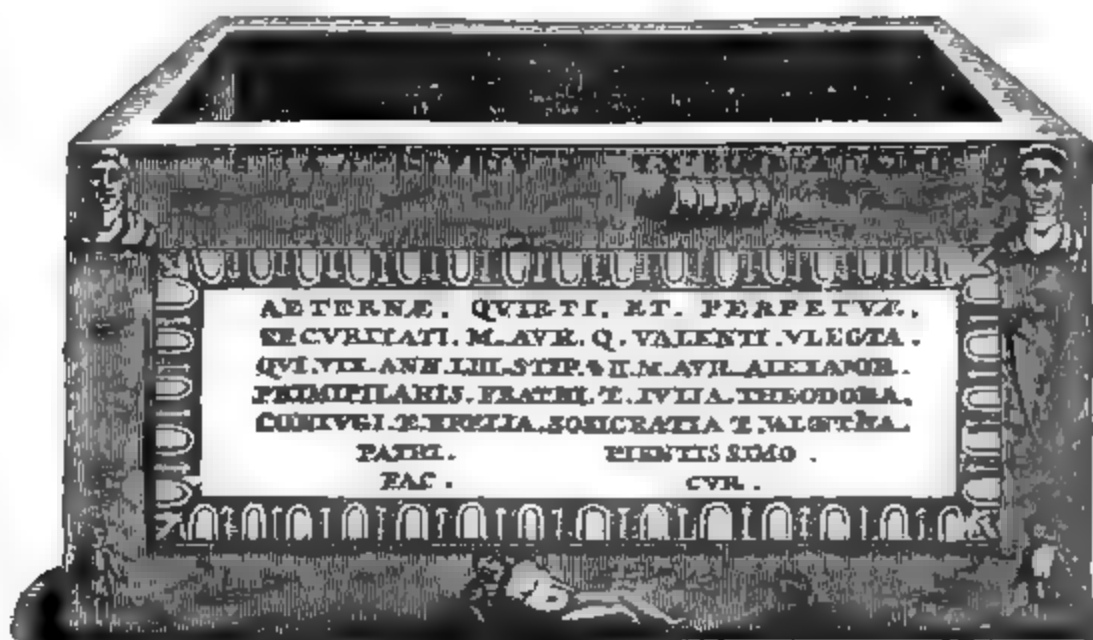 AETERNÆ. QVIETI. ET. PERPETVÆ.
SECVRITATI. M. AVR. Q. VALENTI. VLEGTA.
QVI. VIX. ANN. LIII. STIP. II. M. AVR. ALEXANDR.
PRIMIPILARIS. FRATRI. T. IVLIA. THEODORA.
CONIVGI. SOSICRATIA T.
PATRI. PIENTISSIMO.
FAC. CVR.